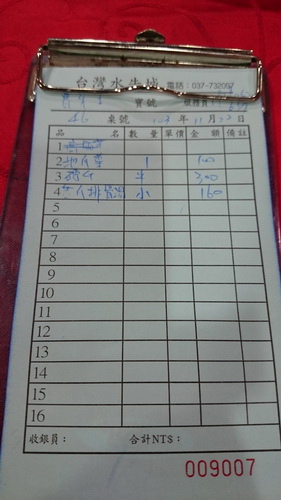 台灣水牛城 電話:037-732097
寶號 服務員:
46 桌號 103年11月22日
品名 數量 單價 金額 備註
1
2 地瓜葉 1 100
3 半 300
4 小 160
5
6
7
8
9
10
11
12
13
14
15
16
收銀員: 合計NT$:
009007